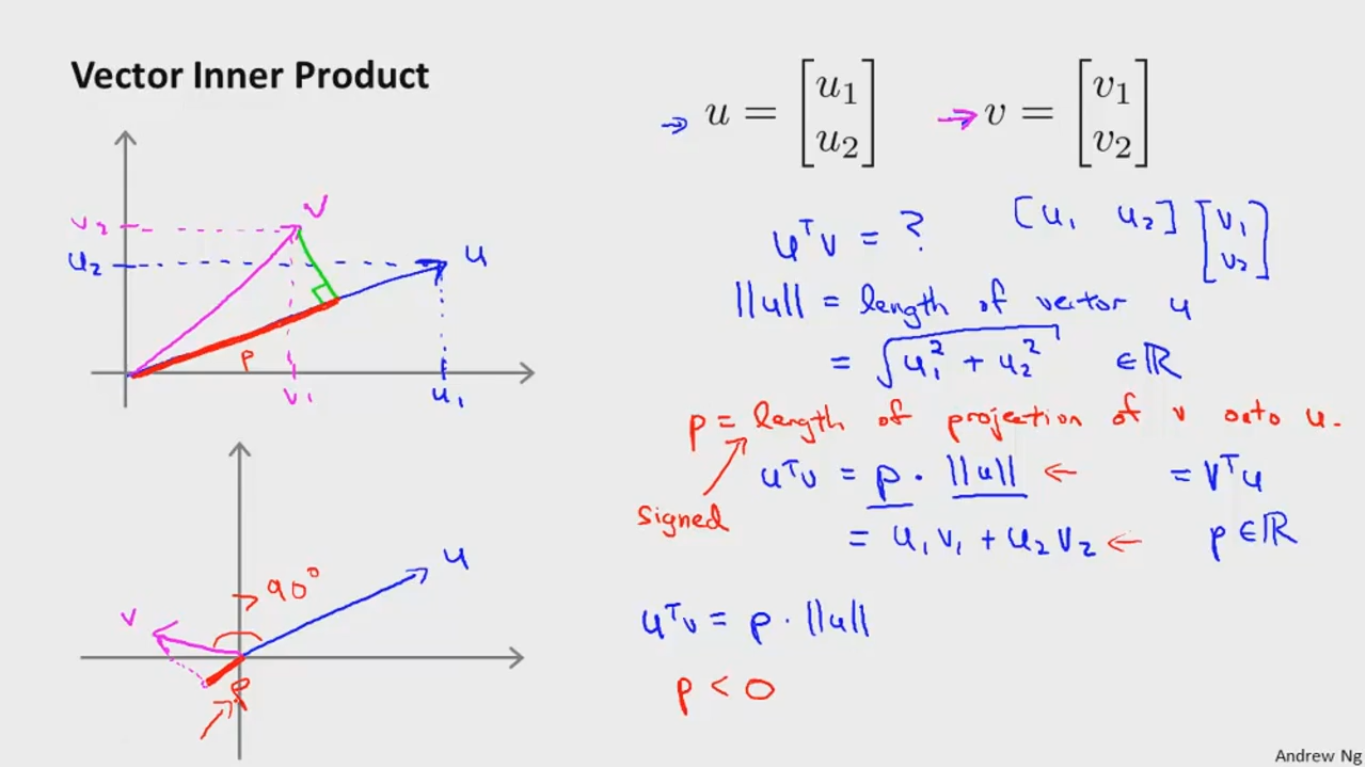 Vector Inner Product
u = [u1 u2] v = [v1 v2]
v
v2
u2
u
p
v1
u1
uᵀv = ? [u1 u2] [v1 v2]
||u|| = length of vector u
= √(u1² + u2²) ∈ ℝ
p = length of projection of v onto u.
signed
uᵀv = p · ||u|| ← = vᵀu
= u1v1 + u2v2 ← p ∈ ℝ
u
> 90°
v
p
uᵀv = p · ||u||
p < 0
Andrew Ng